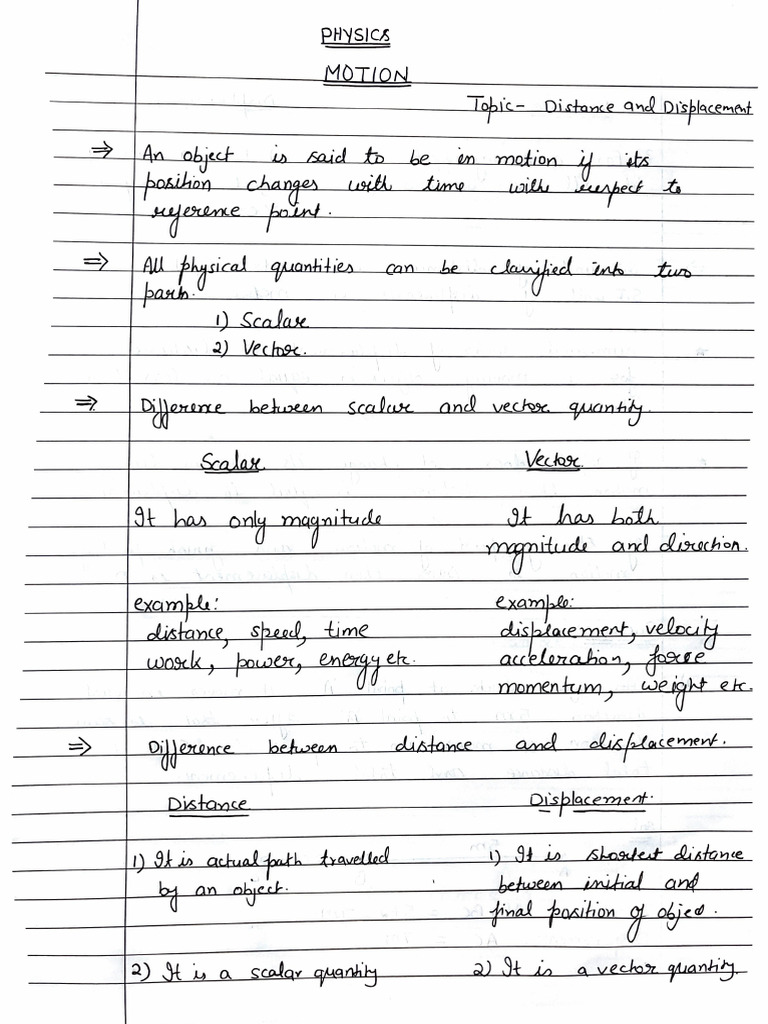 PHYSICS
MOTION
Topic- Distance and Displacement
⇒ An object is said to be in motion if its
position changes with time with respect to
reference point.
⇒ All physical quantities can be classified into two
parts.
1) Scalar
2) Vector.
⇒ Difference between scalar and vector quantity.
Scalar Vector.
It has only magnitude It has both
magnitude and direction.
example: example:
distance, speed, time displacement, velocity
work, power, energy etc. acceleration, force
momentum, weight etc.
⇒ Difference between distance and displacement.
Distance Displacement.
1) It is actual path travelled 1) It is shortest distance
by an object. between initial and
final position of object.
2) It is a scalar quantity 2) It is a vector quantity.